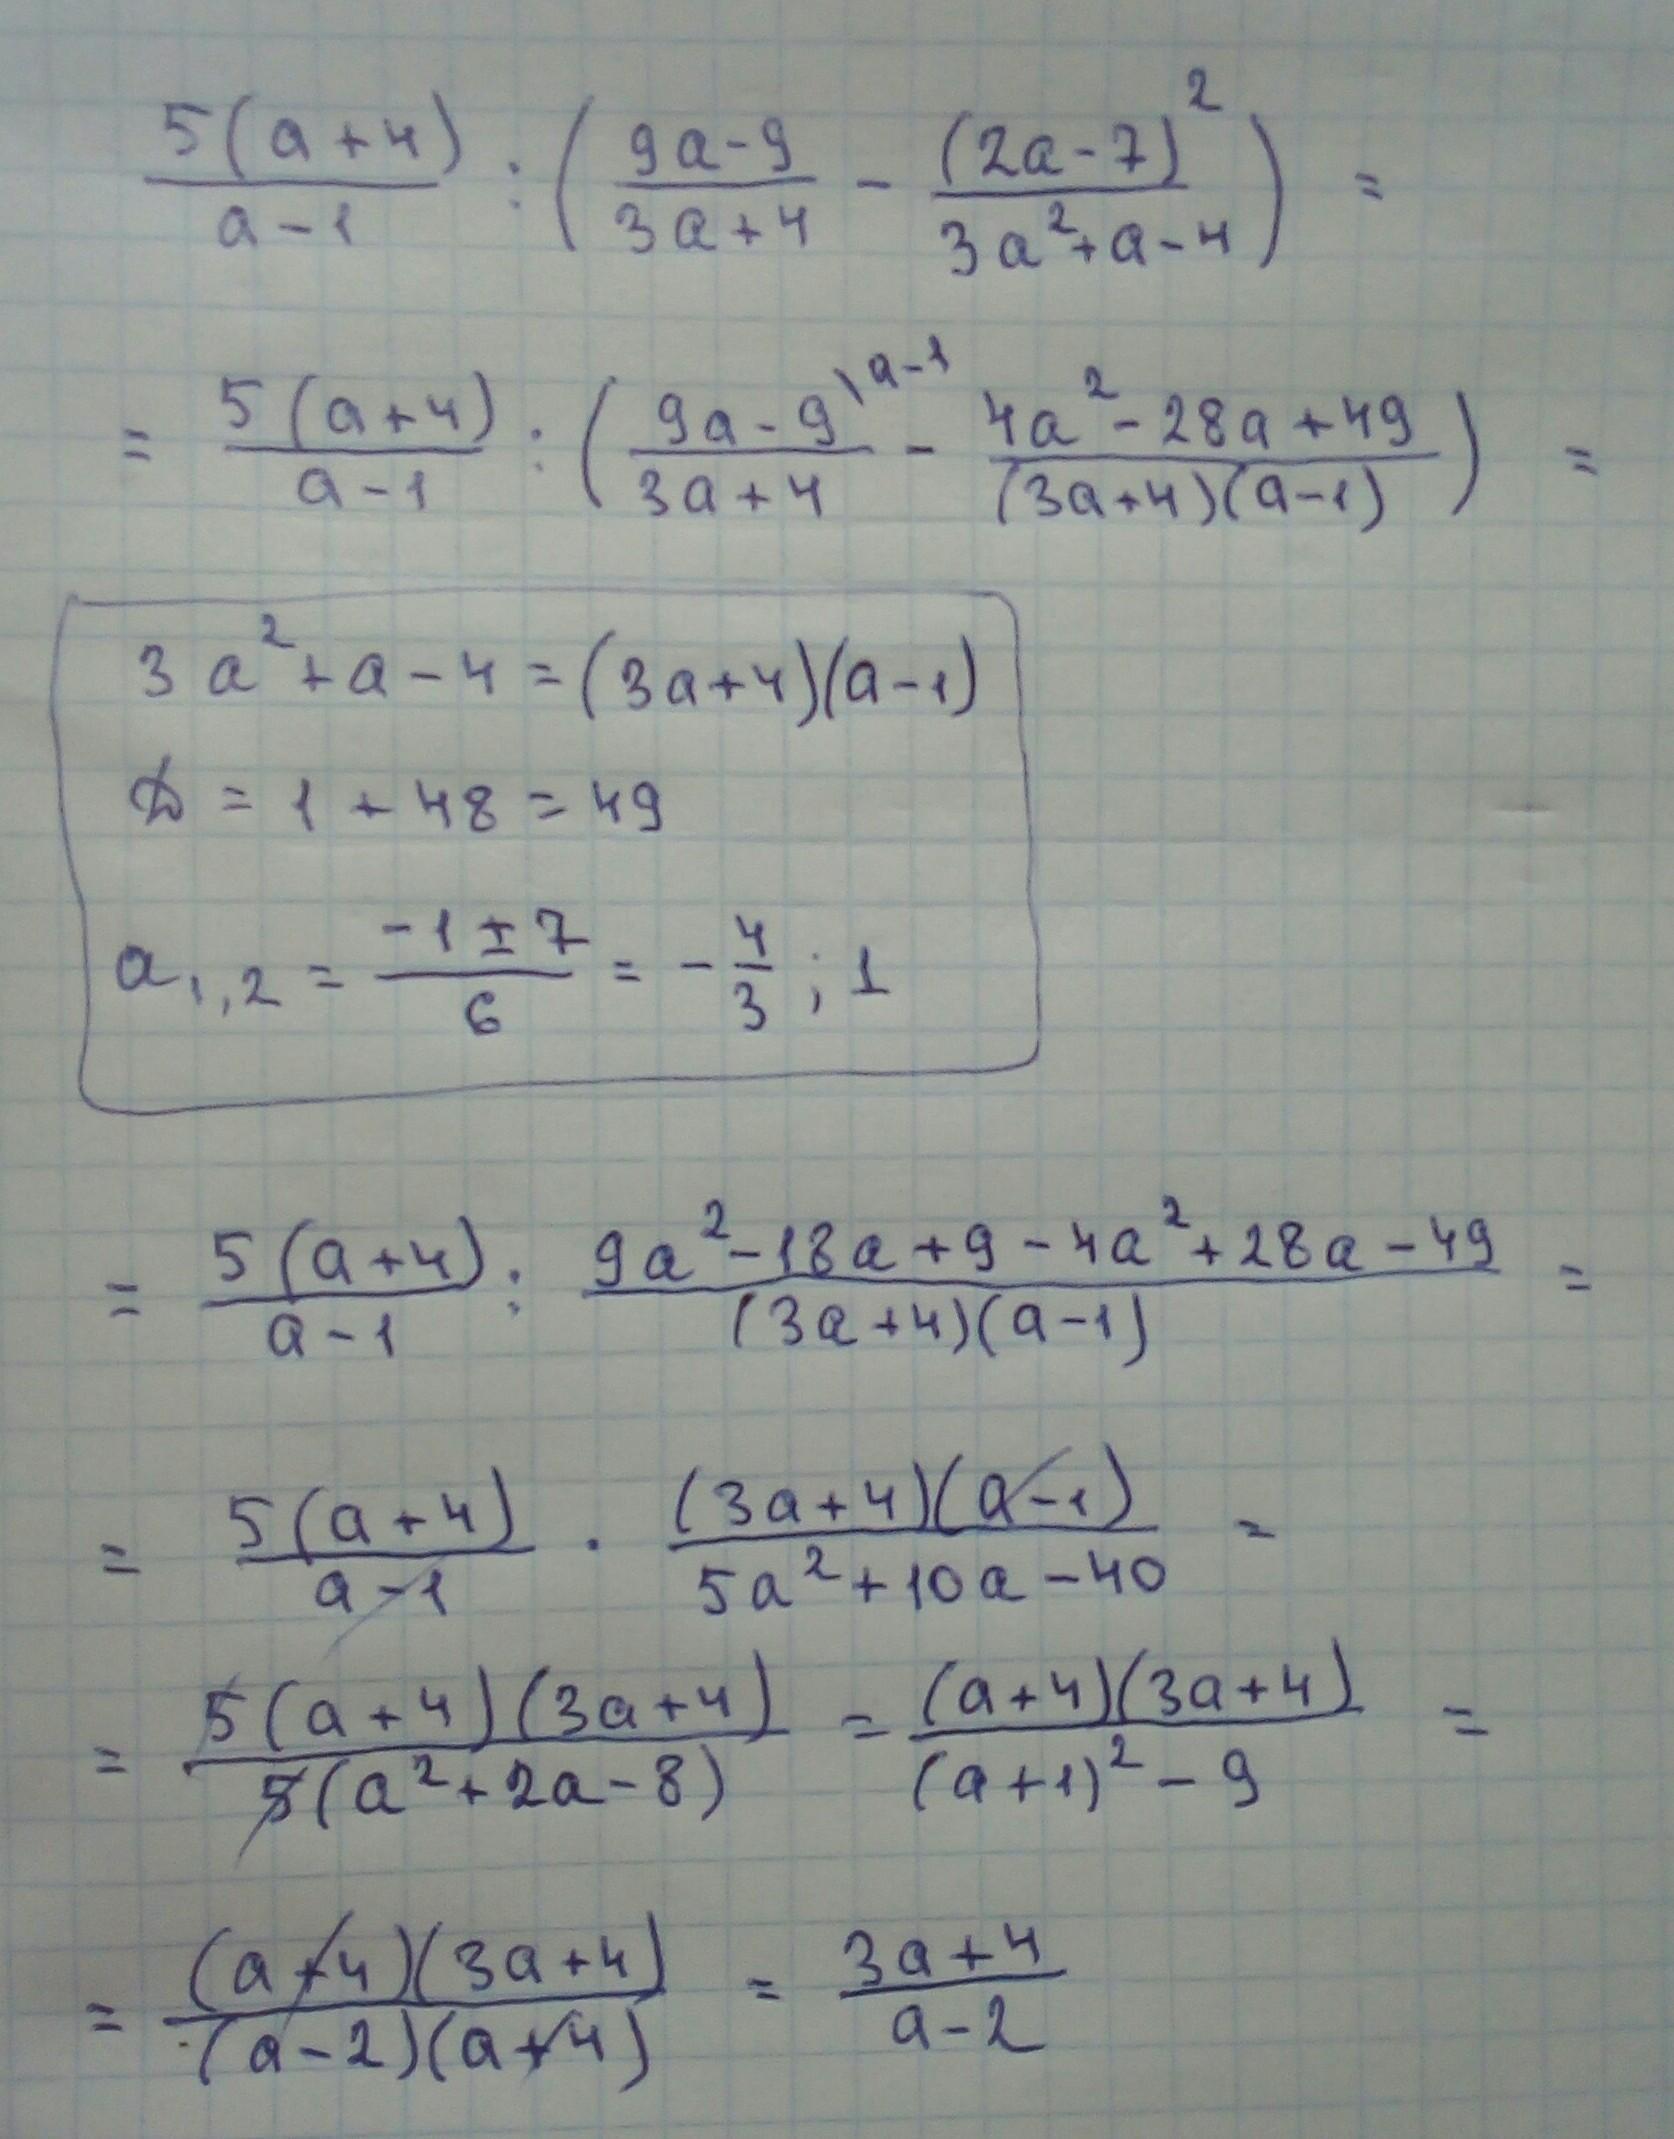 5(a+4)/(a-1) : ((9a-9)/(3a+4) - (2a-7)²/(3a²+a-4)) =
= 5(a+4)/(a-1) : ((9a-9)\a-1/(3a+4) - (4a²-28a+49)/((3a+4)(a-1))) =
3a²+a-4=(3a+4)(a-1)
D = 1 + 48 = 49
a₁,₂ = (-1±7)/6 = -4/3 ; 1
= 5(a+4)/(a-1) : (9a²-18a+9-4a²+28a-49)/((3a+4)(a-1)) =
= 5(a+4)/(a-1) · (3a+4)(a-1)/(5a²+10a-40) =
= 5(a+4)(3a+4)/(5(a²+2a-8)) = (a+4)(3a+4)/((a+1)²-9) =
= (a+4)(3a+4)/((a-2)(a+4)) = (3a+4)/(a-2)